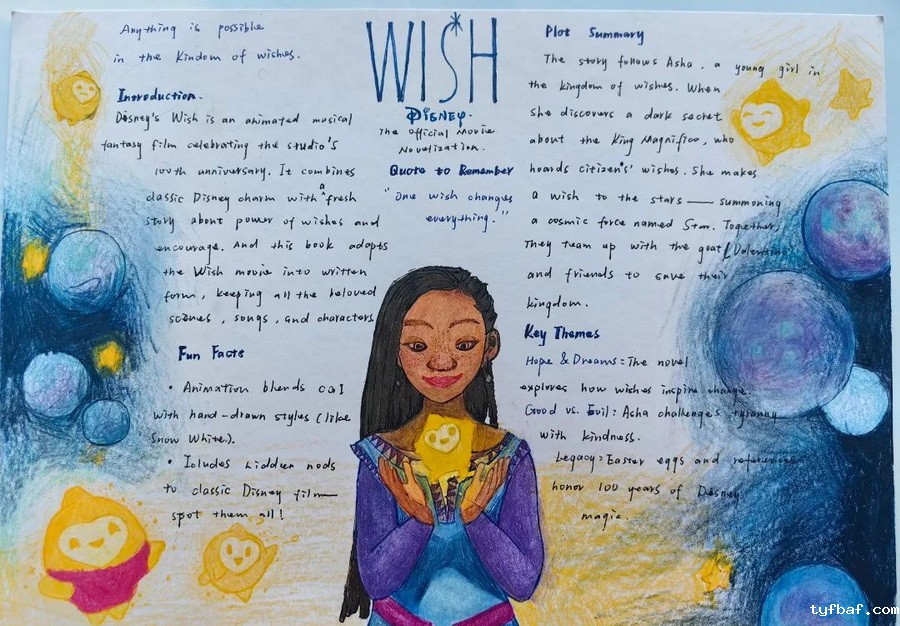 Anything is possible
in the Kindom of wishes.
Introduction.
Disney's Wish is an animated musical
fantasy film celebrating the studio's
100th anniversary. It combines
classic Disney charm with a fresh
story about power of wishes and
encourage. And this book adapts
the Wish movie into written
form, keeping all the beloved
scenes, songs, and charactors
Fun Facts
• Animation blends CGI
with hand-drawn styles (like
Snow White).
• Icludes hidden nods
to classic Disney film—
spot them all!
WISH
DISNEY.
The official Movie
Novelization.
Quote to Remember
"One wish changes
everything."
Plot Summary
The story follows Asha, a young girl in
the kingdom of wishes. When
She discovers a dark secret
about the King Magnifico, who
hoards citizens' wishes. She makes
a wish to the stars — summoning
a cosmic force named Star. Together,
They team up with the goat (Valentino
and friends to save their
kingdom.
Key Themes
Hope & Dreams: The novel
explores how wishes inspire change.
Good vs. Evil: Asha challenges tyranny
with kindness.
Legacy: Easter eggs and references
honor 100 years of Disney
magic.
tyfbaf.com